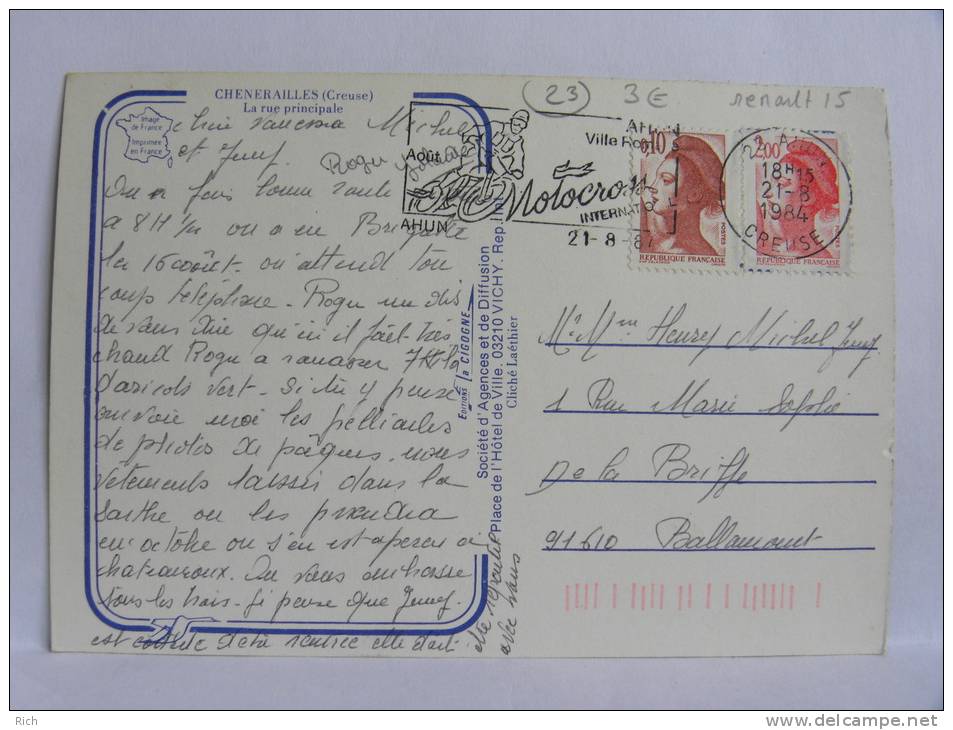 (23) 3€ renault 15
CHENERAILLES (Creuse)
La rue principale
Image de France
Imprimée en France
chère vanessa Michel
et Jeny.
Roger
On a fais bonne route
a 8H 1/2 on a eu
les 16 août. on attend ton
coup téléphone - Roger me dis
de vous dire qu'ici il fait très
chaud Roger a ramasser 7 Kilo
daricots vert. si tu y pense
envoie moi les pellicules
de photos de pâques. nous
vêtements laissés dans la
Sarthe on les prendra
en octobre on s'en est aperçu a
chateauroux. On vous embrasse
tous les trois. Je pense que Jeny
est contente d'être rentrée elle doit
être
avec vous
Août
AHUN
Motocross
INTERNATIONAL
AHUN
Ville Romaine
21-8-87
0,10
POSTES
REPUBLIQUE FRANÇAISE
23 AHUN
18H15
21-8
1984
CREUSE
2,00
REPUBLIQUE FRANÇAISE
Editions la CIGOGNE
Société d'Agences et de Diffusion
Place de l'Hôtel de Ville. 03210 VICHY. Rep. Int.
Cliché Laëthier
Mr Mme Henry Michel Jeny
1 Rue Marie Sophie
De La Briffe
91610 Ballancourt
Rich
http://www.delcampe.net